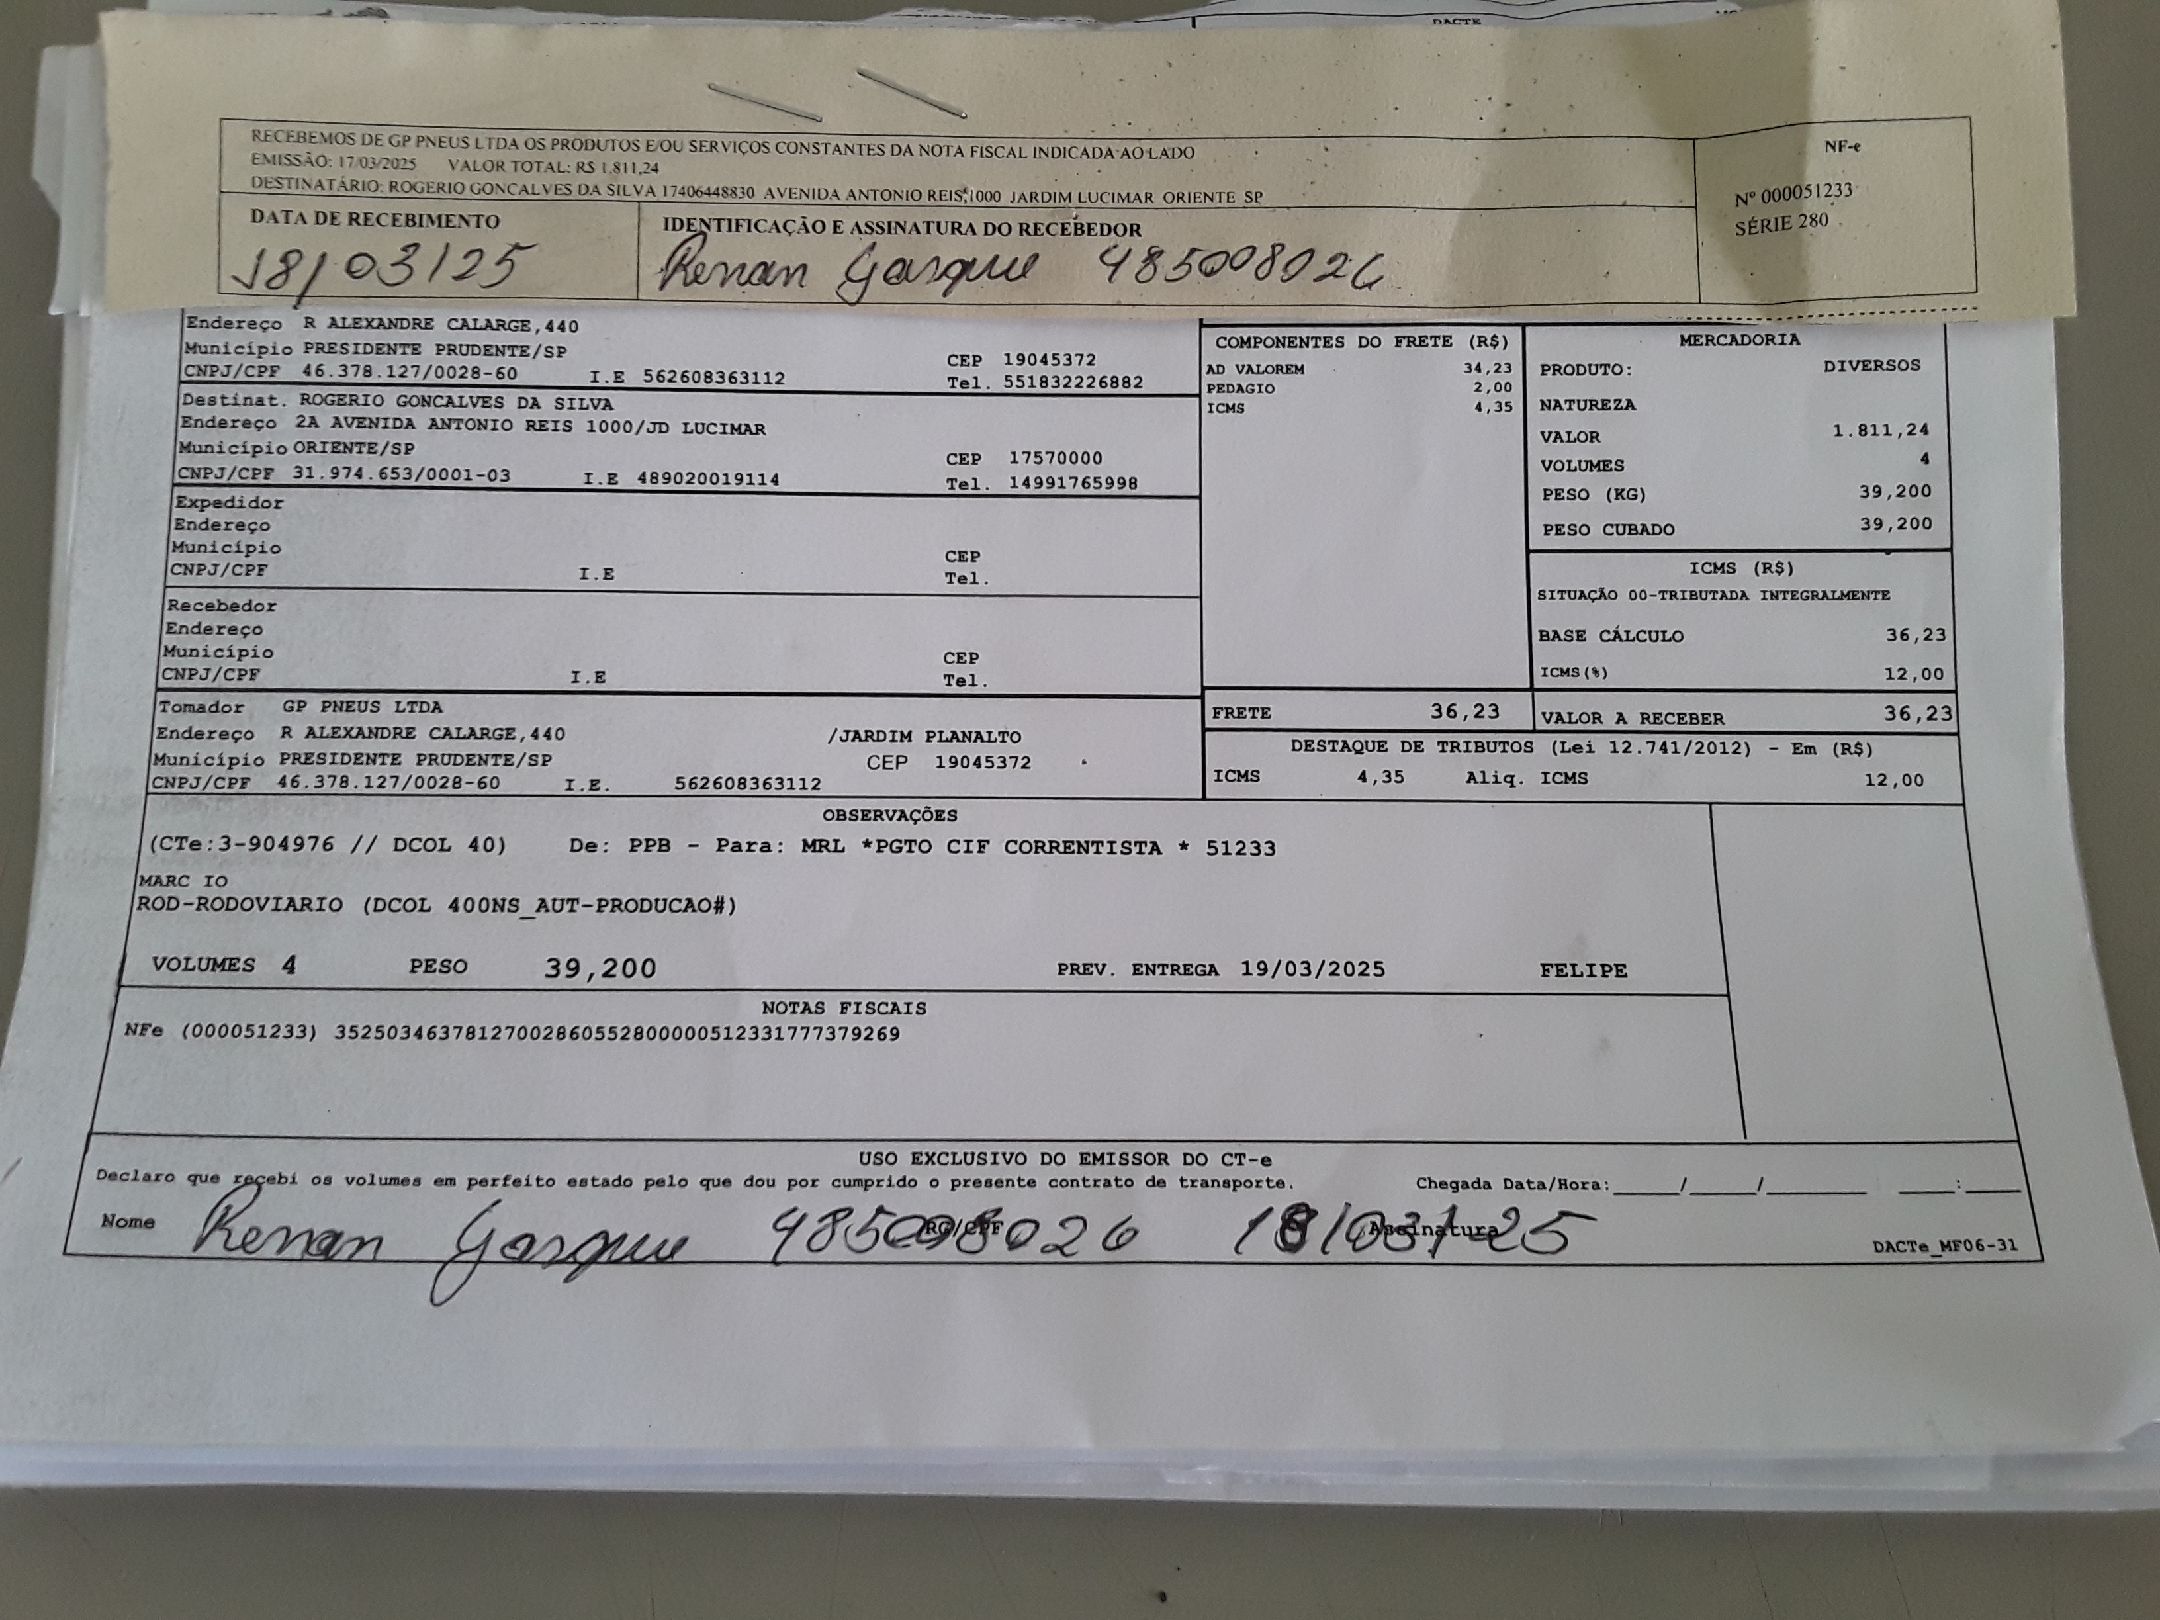 DACTE
RECEBEMOS DE GP PNEUS LTDA OS PRODUTOS E/OU SERVIÇOS CONSTANTES DA NOTA FISCAL INDICADA AO LADO
EMISSÃO: 17/03/2025 VALOR TOTAL: R$ 1.811,24
DESTINATÁRIO: ROGERIO GONCALVES DA SILVA 17406448830 AVENIDA ANTONIO REIS,1000 JARDIM LUCIMAR ORIENTE SP
NF-e
Nº 000051233
SÉRIE 280
DATA DE RECEBIMENTO
18/03/25
IDENTIFICAÇÃO E ASSINATURA DO RECEBEDOR
Renan Gasque 485008026
Endereço R ALEXANDRE CALARGE,440
Município PRESIDENTE PRUDENTE/SP CEP 19045372
CNPJ/CPF 46.378.127/0028-60 I.E 562608363112 Tel. 551832226882
Destinat. ROGERIO GONCALVES DA SILVA
Endereço 2A AVENIDA ANTONIO REIS 1000/JD LUCIMAR
Município ORIENTE/SP CEP 17570000
CNPJ/CPF 31.974.653/0001-03 I.E 489020019114 Tel. 14991765998
Expedidor
Endereço
Município CEP
CNPJ/CPF I.E Tel.
Recebedor
Endereço
Município CEP
CNPJ/CPF I.E Tel.
Tomador GP PNEUS LTDA
Endereço R ALEXANDRE CALARGE,440 /JARDIM PLANALTO
Município PRESIDENTE PRUDENTE/SP CEP 19045372
CNPJ/CPF 46.378.127/0028-60 I.E. 562608363112
COMPONENTES DO FRETE (R$)
AD VALOREM 34,23
PEDAGIO 2,00
ICMS 4,35
MERCADORIA
PRODUTO: DIVERSOS
NATUREZA
VALOR 1.811,24
VOLUMES 4
PESO (KG) 39,200
PESO CUBADO 39,200
ICMS (R$)
SITUAÇÃO 00-TRIBUTADA INTEGRALMENTE
BASE CÁLCULO 36,23
ICMS(%) 12,00
FRETE 36,23 VALOR A RECEBER 36,23
DESTAQUE DE TRIBUTOS (Lei 12.741/2012) - Em (R$)
ICMS 4,35 Aliq. ICMS 12,00
OBSERVAÇÕES
(CTe:3-904976 // DCOL 40) De: PPB - Para: MRL *PGTO CIF CORRENTISTA * 51233
MARC IO
ROD-RODOVIARIO (DCOL 400NS_AUT-PRODUCAO#)
VOLUMES 4 PESO 39,200 PREV. ENTREGA 19/03/2025 FELIPE
NOTAS FISCAIS
NFe (000051233) 35250346378127002860552800000512331777379269
USO EXCLUSIVO DO EMISSOR DO CT-e
Declaro que recebi os volumes em perfeito estado pelo que dou por cumprido o presente contrato de transporte. Chegada Data/Hora:_____/_____/________ ____:____
Nome Renan Gasque RG/CPF 485008026 Assinatura 18/03/25
DACTe_MF06-31